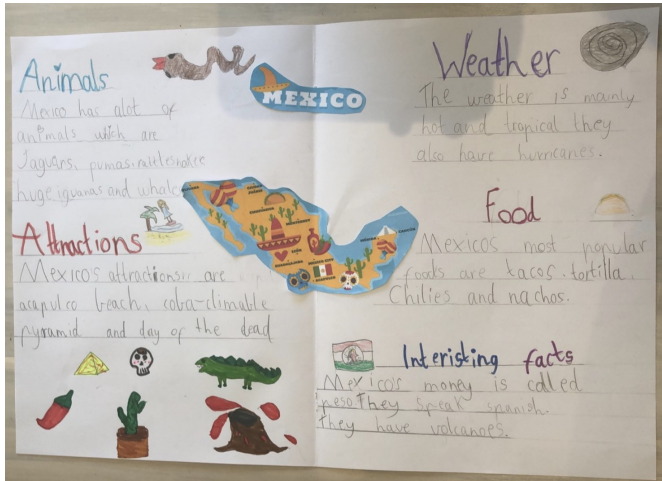 Animals
Mexico has alot of
animals which are
Jaguars, pumas.rattlesnake
huge iguanas and whale
Attractions
Mexicos attractions are
acapulco beach, coba-climable
pyramid and day of the dead
MEXICO
Weather
The weather is mainly
hot and tropical they
also have hurricanes.
Food
Mexicos most popular
foods are tacos.tortilla.
Chilies and nachos.
Interisting facts
Mexico's money is called
peso.They speak spanish.
They have volcanoes.